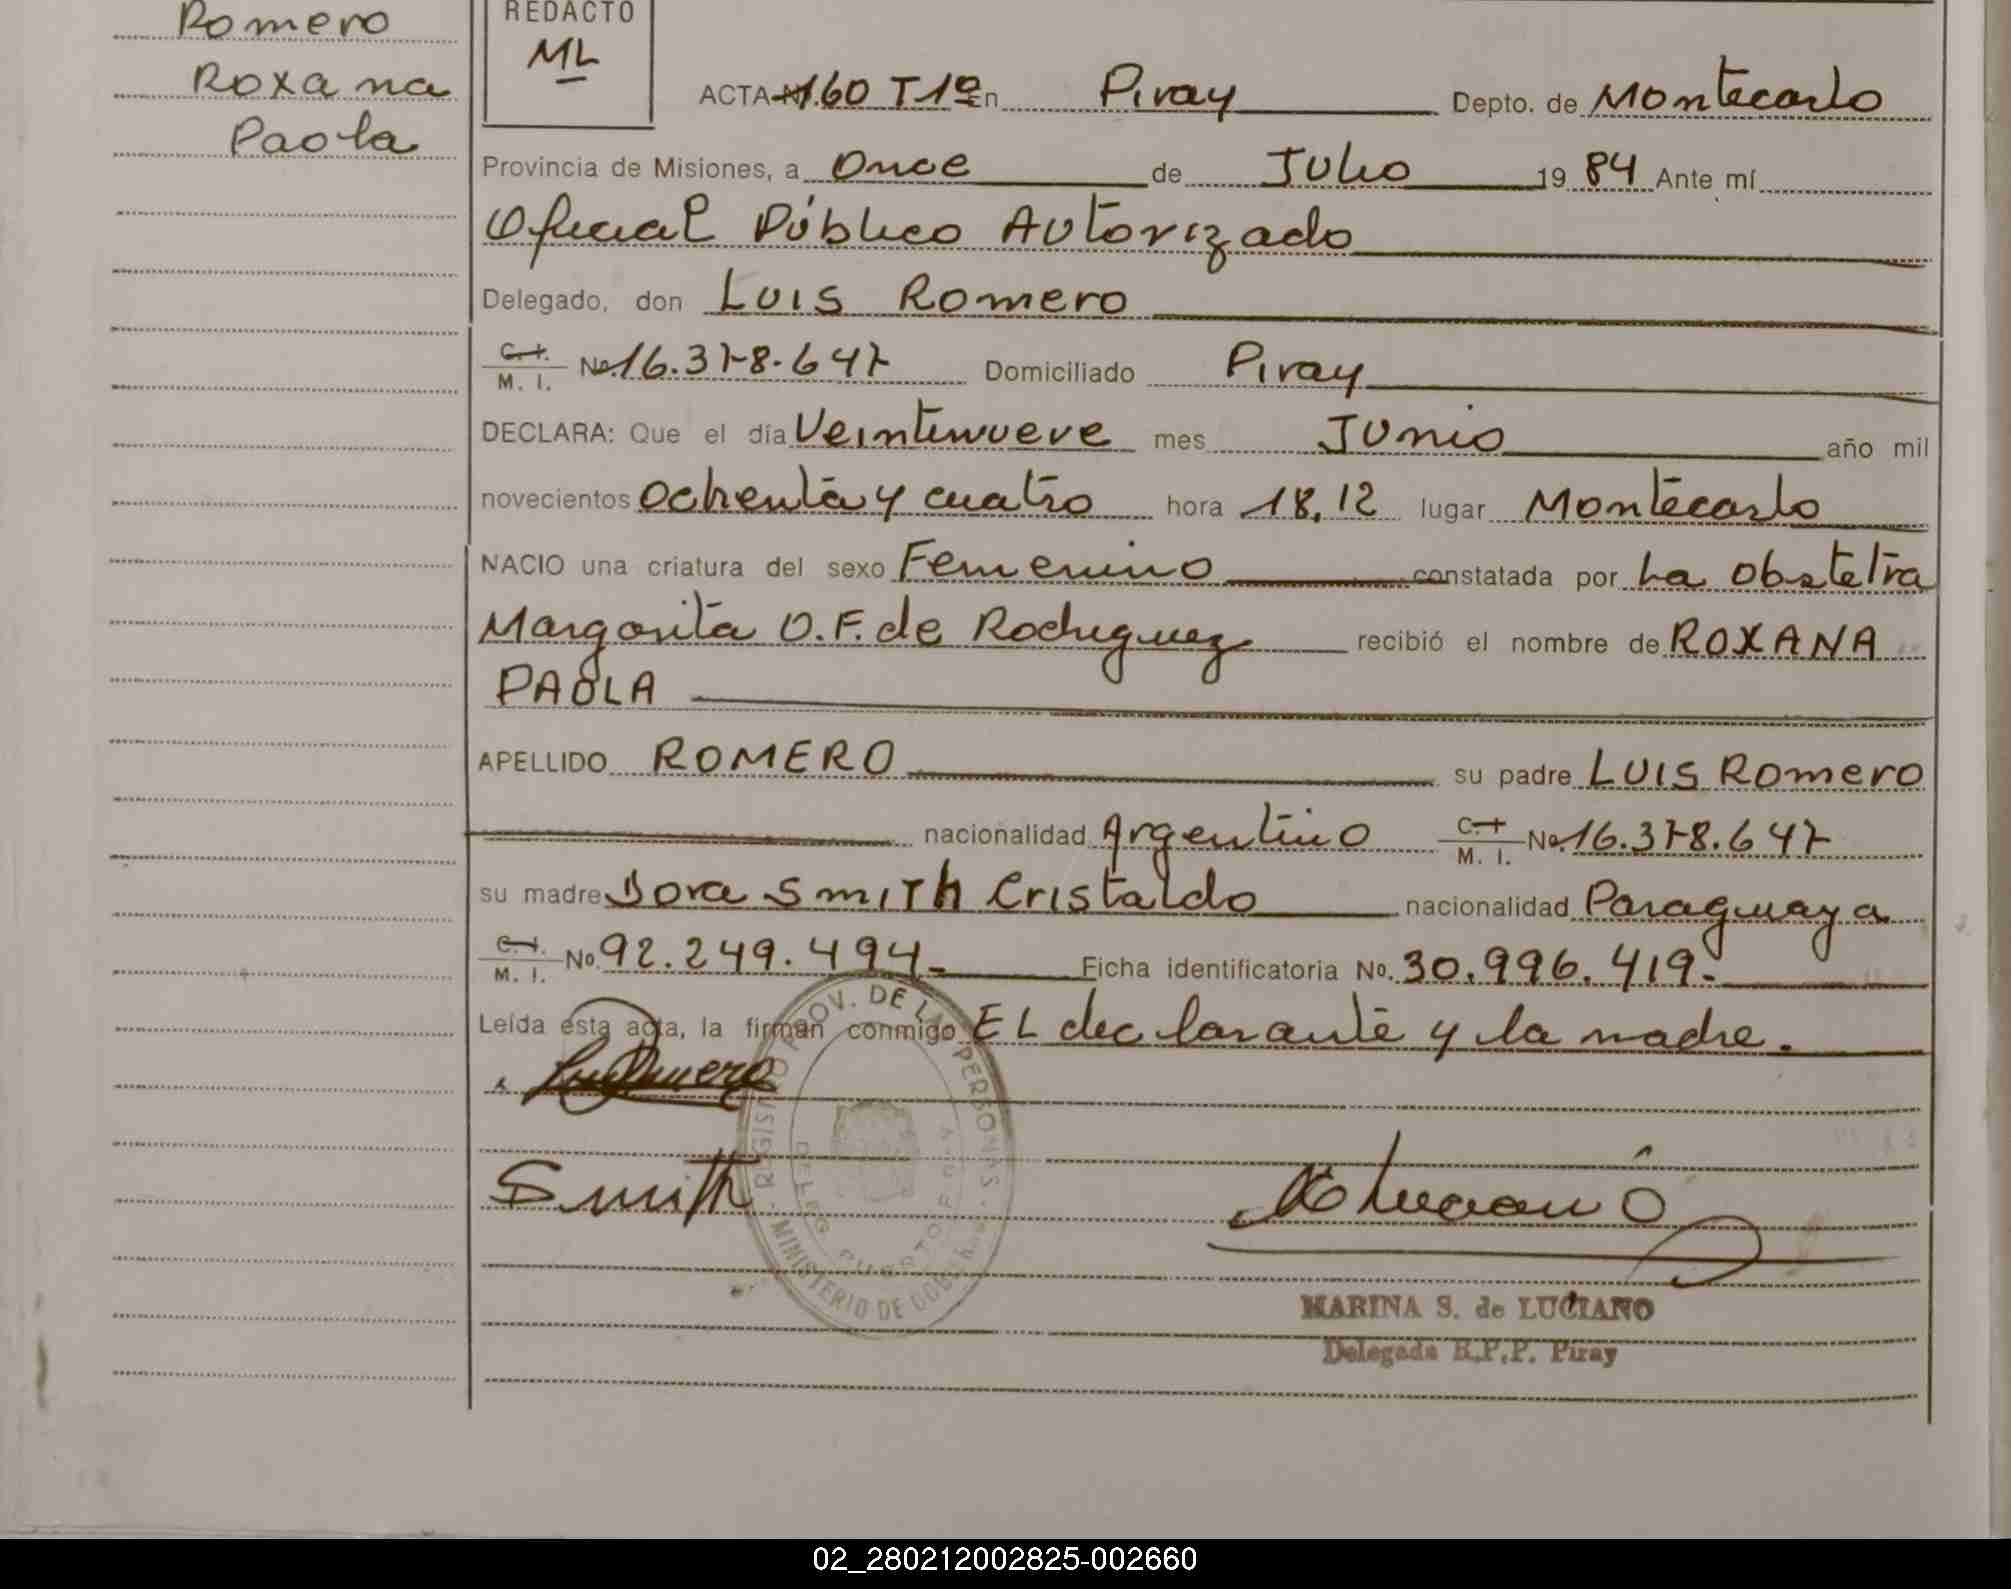 Romero
Roxana
Paola
REDACTO
ML
ACTA Nº 160 T1º En Piray Depto. de Montecarlo
Provincia de Misiones, a Once de Julio 1984 Ante mí
Oficial Público Autorizado
Delegado, don Luis Romero
C. I. M. I. Nº 16.378.647 Domiciliado Piray
DECLARA: Que el día Veintinueve mes Junio año mil
novecientos Ochenta y cuatro hora 18,12 lugar Montecarlo
NACIO una criatura del sexo Femenino constatada por La obstetra
Margarita O.F. de Rodriguez recibió el nombre de ROXANA
PAOLA
APELLIDO ROMERO su padre Luis Romero
nacionalidad Argentino C. I. M. I. Nº 16.378.647
su madre Dora Smith Cristaldo nacionalidad Paraguaya
C. I. M. I. Nº 92.249.494.- Ficha identificatoria Nº. 30.996.419.-
Leída esta acta, la firman conmigo EL declarante y la madre.
REGISTRO PROV. DE LAS PERSONAS - MINISTERIO DE
DELEG. PUERTO PIRAY
Smith
MARINA S. de LUCIANO
Delegada R.P.P. Piray
02_280212002825-002660